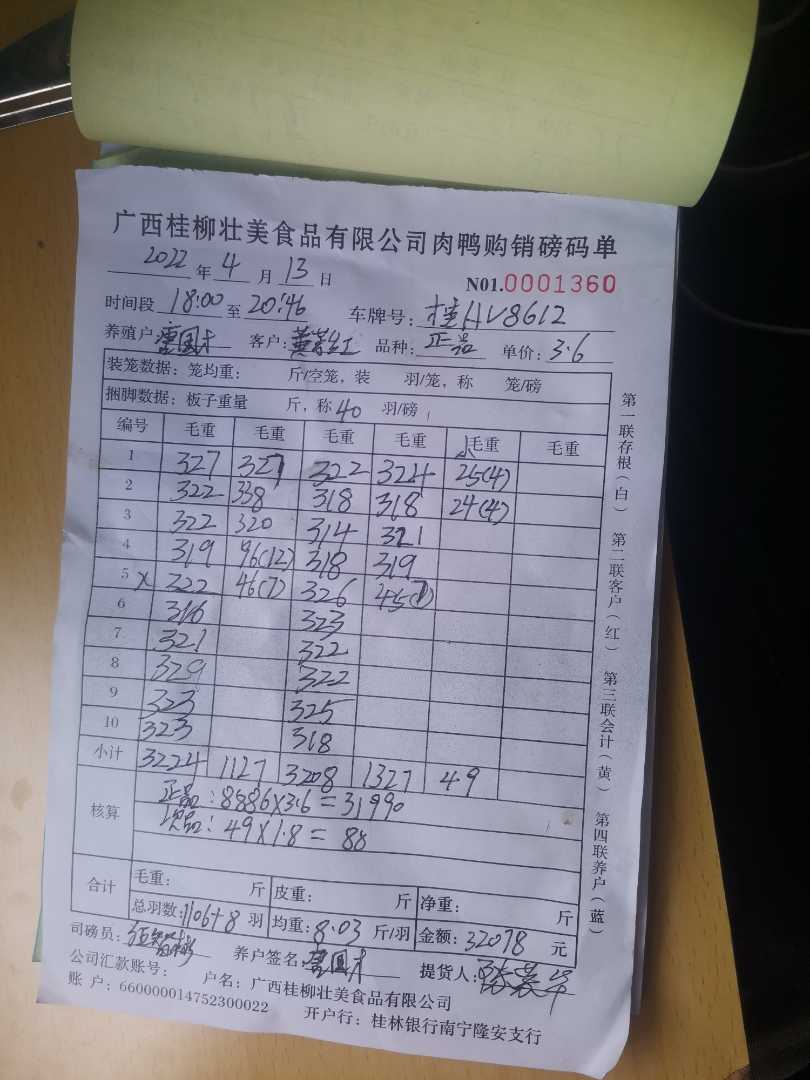 广西桂柳壮美食品有限公司肉鸭购销磅码单
2022 年 4 月 13 日 N01.0001360
时间段 18:00 至 20:46 车牌号: 桂AV8612
养殖户: 国才 客户: 黄 品种: 正品 单价: 3.6
装笼数据: 笼均重: 斤/空笼, 装 羽/笼, 称 笼/磅
捆脚数据: 板子重量 斤, 称 40 羽/磅
编号 毛重 毛重 毛重 毛重 次毛重 毛重
1 327 327 322 324 25(4)
2 322 338 318 318 24(4)
3 322 320 314 321
4 319 96(12) 318 319
5 x 322 46(7) 326 45(7)
6 316 323
7 321 322
8 329 322
9 323 325
10 323 318
小计 3224 1127 3208 1327 49
核算 正品: 8886×3.6=31990
次品: 49×1.8= 88
合计 毛重: 斤 皮重: 斤 净重: 斤
总羽数: 1106+8 羽 均重: 8.03 斤/羽 金额: 32078 元
司磅员: 养户签名: 国才 提货人:
公司汇款账号: 户名: 广西桂柳壮美食品有限公司
账 户: 660000014752300022 开户行: 桂林银行南宁隆安支行
第一联存根(白) 第二联客户(红) 第三联会计(黄) 第四联养户(蓝)